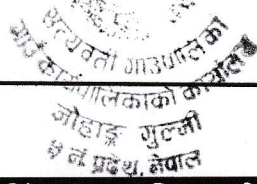 सत्यवती गाउँपालिका
गाउँ कार्यपालिकाको कार्यालय
जोहाङ्ग गुल्मी
५ नं. प्रदेश, नेपाल